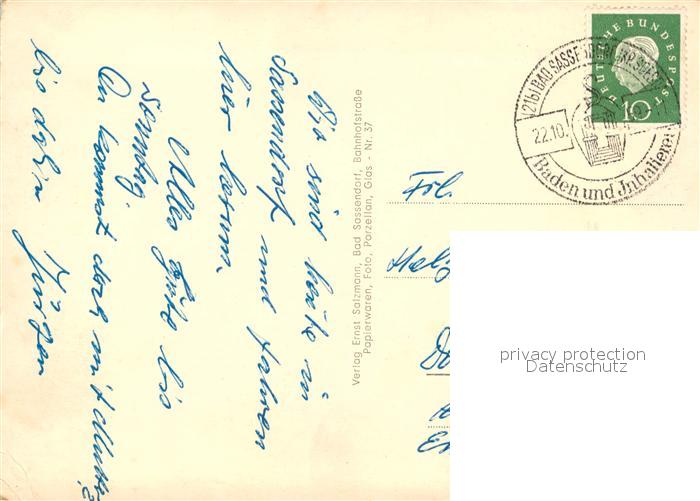 Wir sind heute in
Sassendorf und fahren
hier herum.
Alles Gute bis
Sonntag.
Du kommst doch mit Mutti?
bis dahin Jürgen
Verlag Ernst Salzmann, Bad Sassendorf, Bahnhofstraße
Papierwaren, Foto, Porzellan, Glas - Nr. 37
DEUTSCHE BUNDESPOST
10
(21b) BAD SASSENDORF
22.10.
Baden und Inhalieren
Frl.
privacy protection
Datenschutz